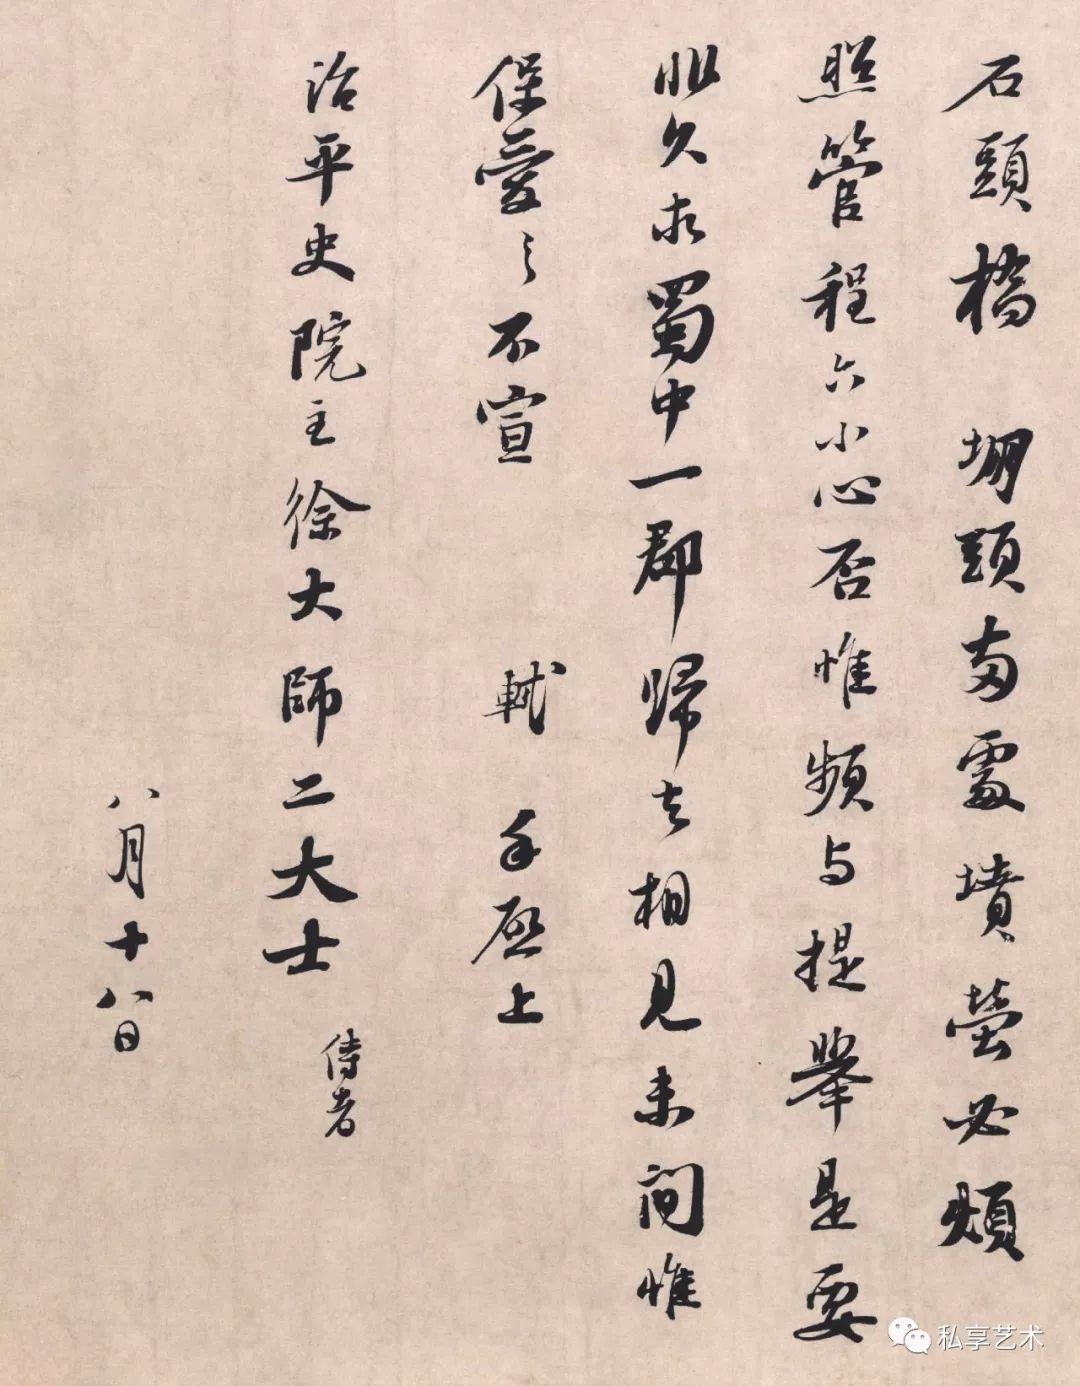 石頭橋 堋頭兩處墳塋必煩
照管程六小心否惟頻與提舉是要
非久求蜀中一郡歸去相見未間惟
保愛之不宣 軾 手啟上
治平史院主徐大師二大士 侍者
八月十八日
私享艺术